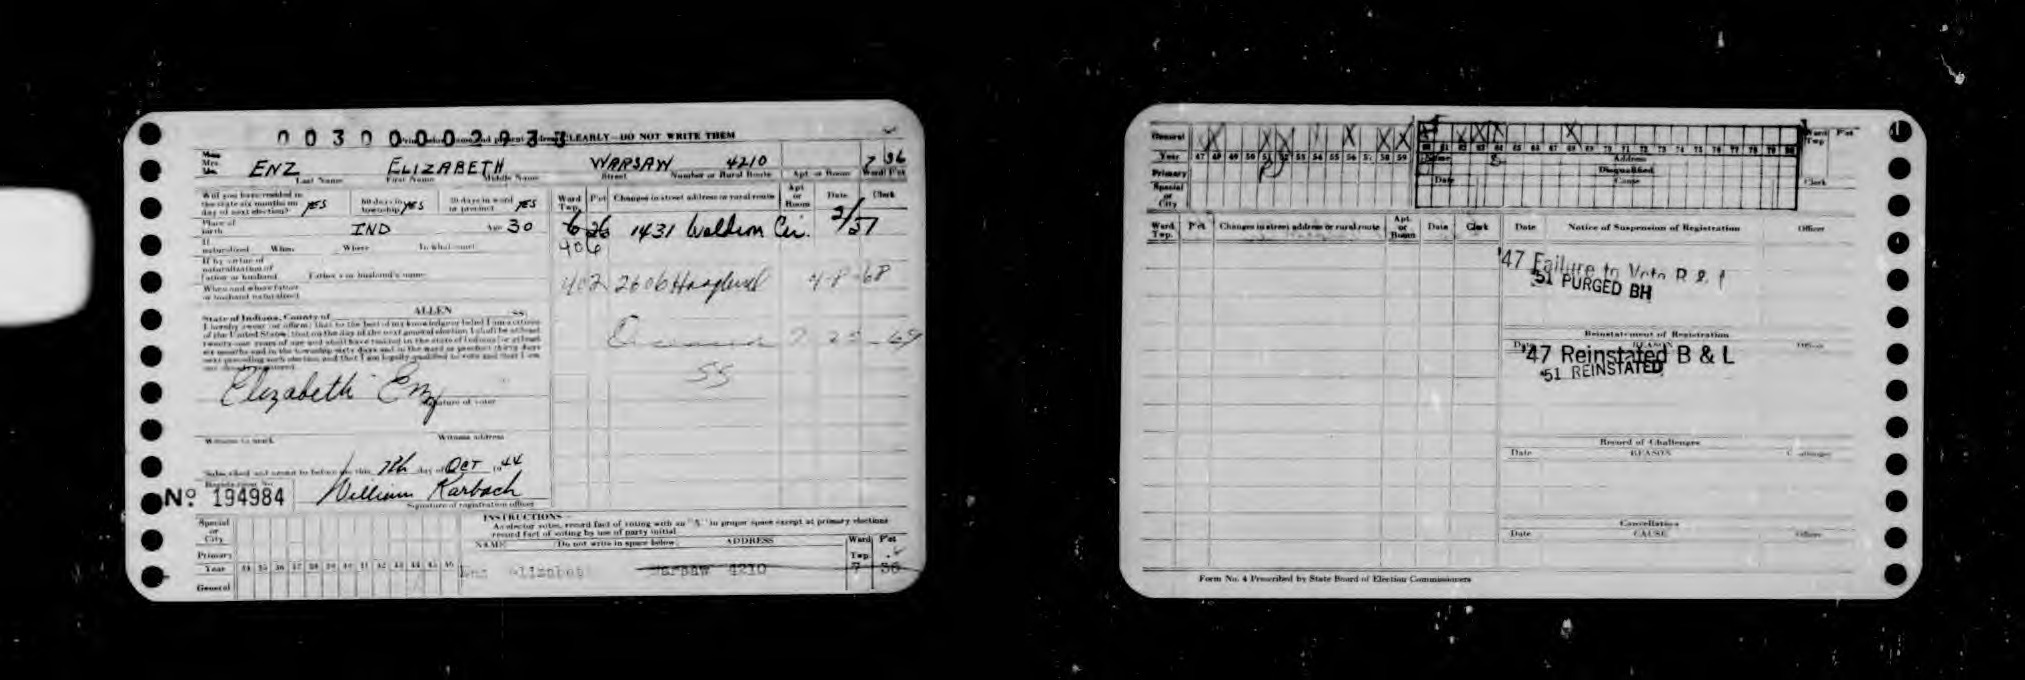 0030000293
CLEARLY—DO NOT WRITE THEM
Miss Mrs. ENZ ELIZABETH WARSAW 4210 7 36
Last Name First Name Middle Name Street Number or Rural Route Apt. or Room Ward P'ct
Will you have resided in the state six months on day of next election? YES 60 days in township YES 30 days in ward or precinct YES
Ward Twp. P'ct Changes in street address or rural route Apt. or Room Date Clerk
Place of birth IND Age 30
6 26 1431 Cir. 2/57
406
If naturalized When Where In what court
If by virtue of naturalization of father or husband Father's or husband's name
402 2606 4-8-68
When and where father or husband naturalized
State of Indiana, County of ALLEN SS:
I hereby swear (or affirm) that to the best of my knowledge or belief I am a citizen
of the United States; that on the day of the next general election I shall be at least
twenty-one years of age and shall have resided in the state of Indiana for at least
six months and in the township sixty days and in the ward or precinct thirty days
next preceding such election and that I am legally qualified to vote and that I am
55
Elizabeth Enz
Signature of voter
Witness to mark Witness address
Subscribed and sworn to before me this 7th day of OCT 1944
Registration No.
No. 194984 William Karbach
Signature of registration officer
INSTRUCTIONS—
An elector votes, record fact of voting with an "X" in proper space except at primary elections
record fact of voting by use of party initial.
Special or City
NAME (Do not write in space below) ADDRESS Ward Twp. P'ct
Primary
Year 34 35 36 37 38 39 40 41 42 43 44 45 46
Enz Elizabet Warsaw 4210 7 36
General
General X X X X X X X X X X X
Year 47 48 49 50 51 52 53 54 55 56 57 58 59 60 61 62 63 64 65 66 67 68 69 70 71 72 73 74 75 76 77 78 79 80
Ward Twp P'ct
Primary
Name Address
Disqualified
Special or City
Date Cause Clerk
Ward Twp. P'ct Changes in street address or rural route Apt. or Room Date Clerk
Date Notice of Suspension of Registration Officer
'47 Failure to Vote
'51 PURGED BH
Reinstatement of Registration
Date REASON Officer
'47 Reinstated B & L
'51 REINSTATED
Record of Challenges
Date REASON Challenger
Cancellation
Date CAUSE Officer
Form No. 4 Prescribed by State Board of Election Commissioners